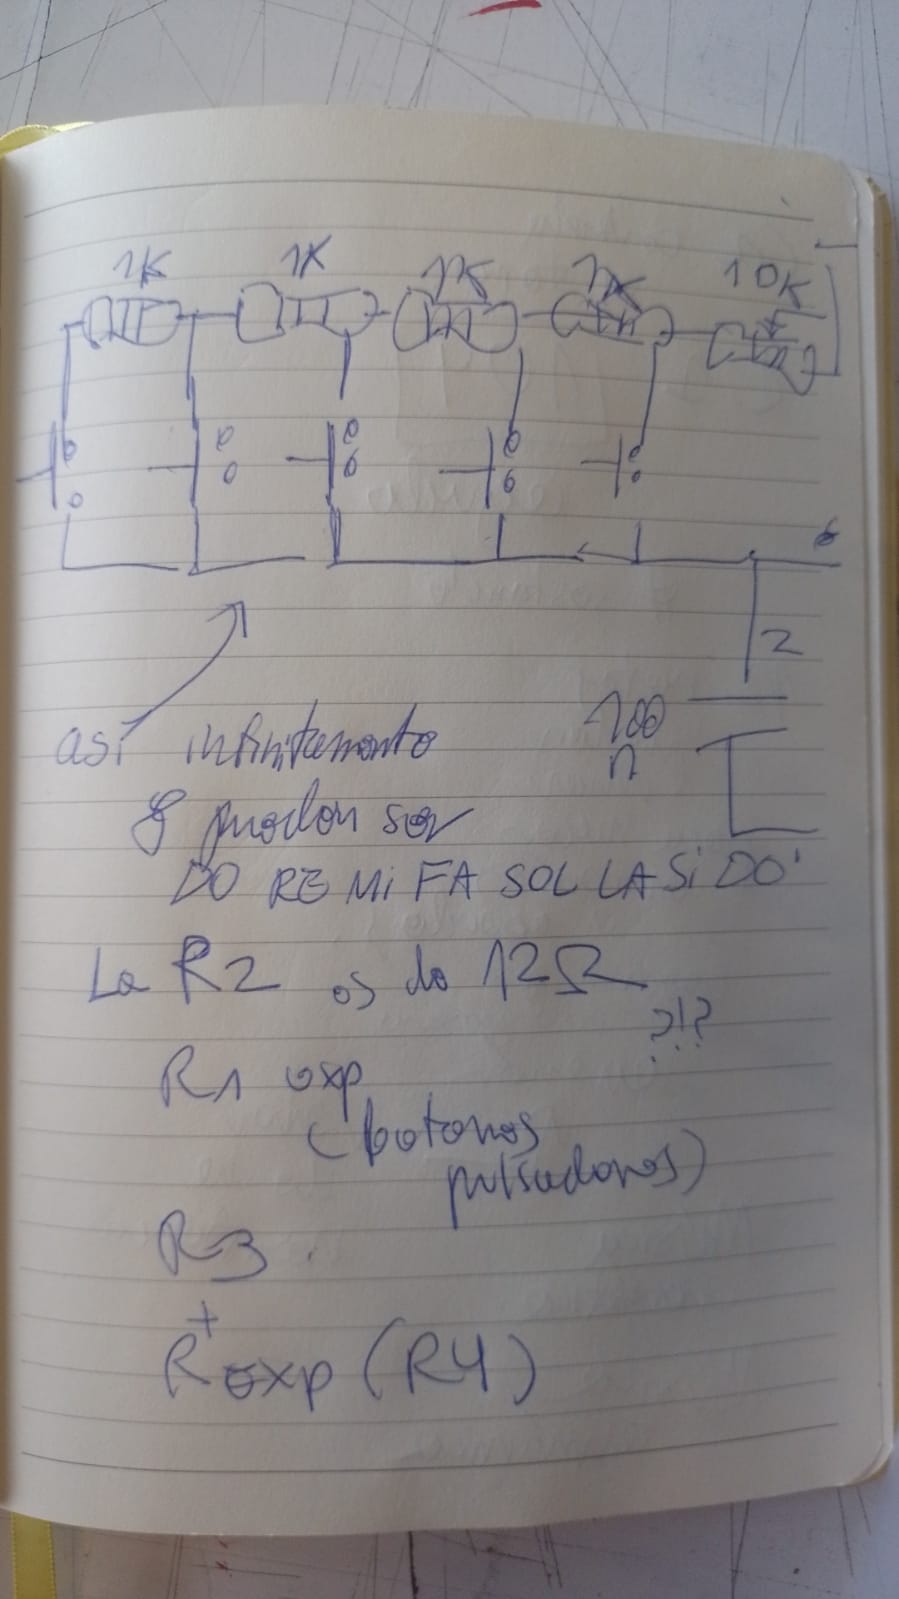 1K 1K 1K 1K 10K
6
2
100
n
así infinitamente
8 pueden ser
DO RE Mi FA SOL LA Si DO'
La R2 es de 12Ω
?!?
R1 exp
(botones
pulsadores)
R3
+
R exp (R4)